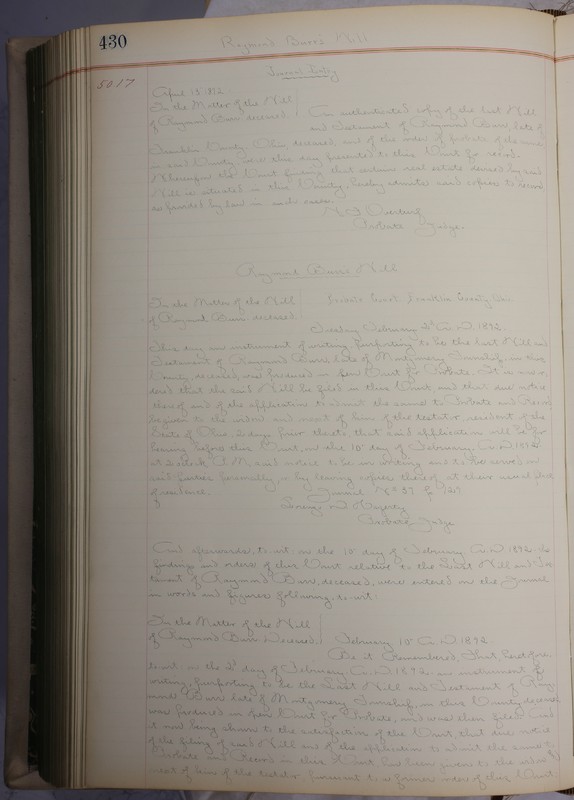 430
Raymond Burrs Will
5017
Journal Entry
April 13 1892
In the Matter of the Will
of Raymond Burr deceased.
An authenticated copy of the last Will
and Testament of Raymond Burr, late of
Franklin County, Ohio, deceased, and of the order of probate of the same
in said County, was this day presented to this Court for record.
Wherefore the Court finding that certain real estate devised by said
Will is situated in this County, hereby admits said copies to record
as provided by law in such cases.
Probate Judge.
Raymond Burrs Will
In the Matter of the Will
of Raymond Burr deceased.
Probate Court Franklin County
Tuesday February 2d A.D. 1892.
This day an instrument of writing, purporting to be the last Will and
Testament of Raymond Burr, late of Montgomery Township, in this
County, deceased, was produced in open Court for Probate. It is now or-
dered that the said Will be filed in this Court, and that due notice
thereof and of the application to admit the same to Probate and Record
be given to the widow and next of kin of the testator, resident of the
State of Ohio, days prior thereto, that said application will be for
hearing before this Court, on the 10th day of February, A.D. 1892
at o'clock A.M. said notice to be in writing and to be served on
said parties personally, or by leaving copies thereof at their usual place
of residence.
Journal No 37
Hagerty
Probate Judge
And afterwards, to-wit: on the 10th day of February A.D. 1892 the
findings and orders of this Court relative to the Last Will and Tes-
tament of Raymond Burr, deceased, were entered on the Journal
in words and figures following, to-wit:
In the Matter of the Will
of Raymond Burr Deceased.
February 10th A.D. 1892
Be it Remembered, That, heretofore
to-wit: on the 2d day of February A.D. 1892, an instrument of
writing, purporting to be the Last Will and Testament of Ray-
mond Burr late of Montgomery Township, in this County, deceased
was produced in open Court for Probate, and was then filed. And
it now being shown to the satisfaction of the Court, that due notice
of the filing of said Will and of the application to admit the same to
Probate and Record in this Court, has been given to the widow &
next of kin of the testator pursuant to a former order of this Court